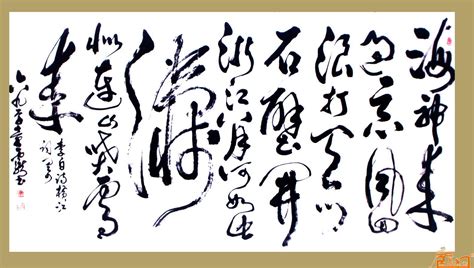 海神来
过恶风回
浪打天门
石壁开
浙江八月何如此
涛
似连山喷雪
来
李白诗横江
词